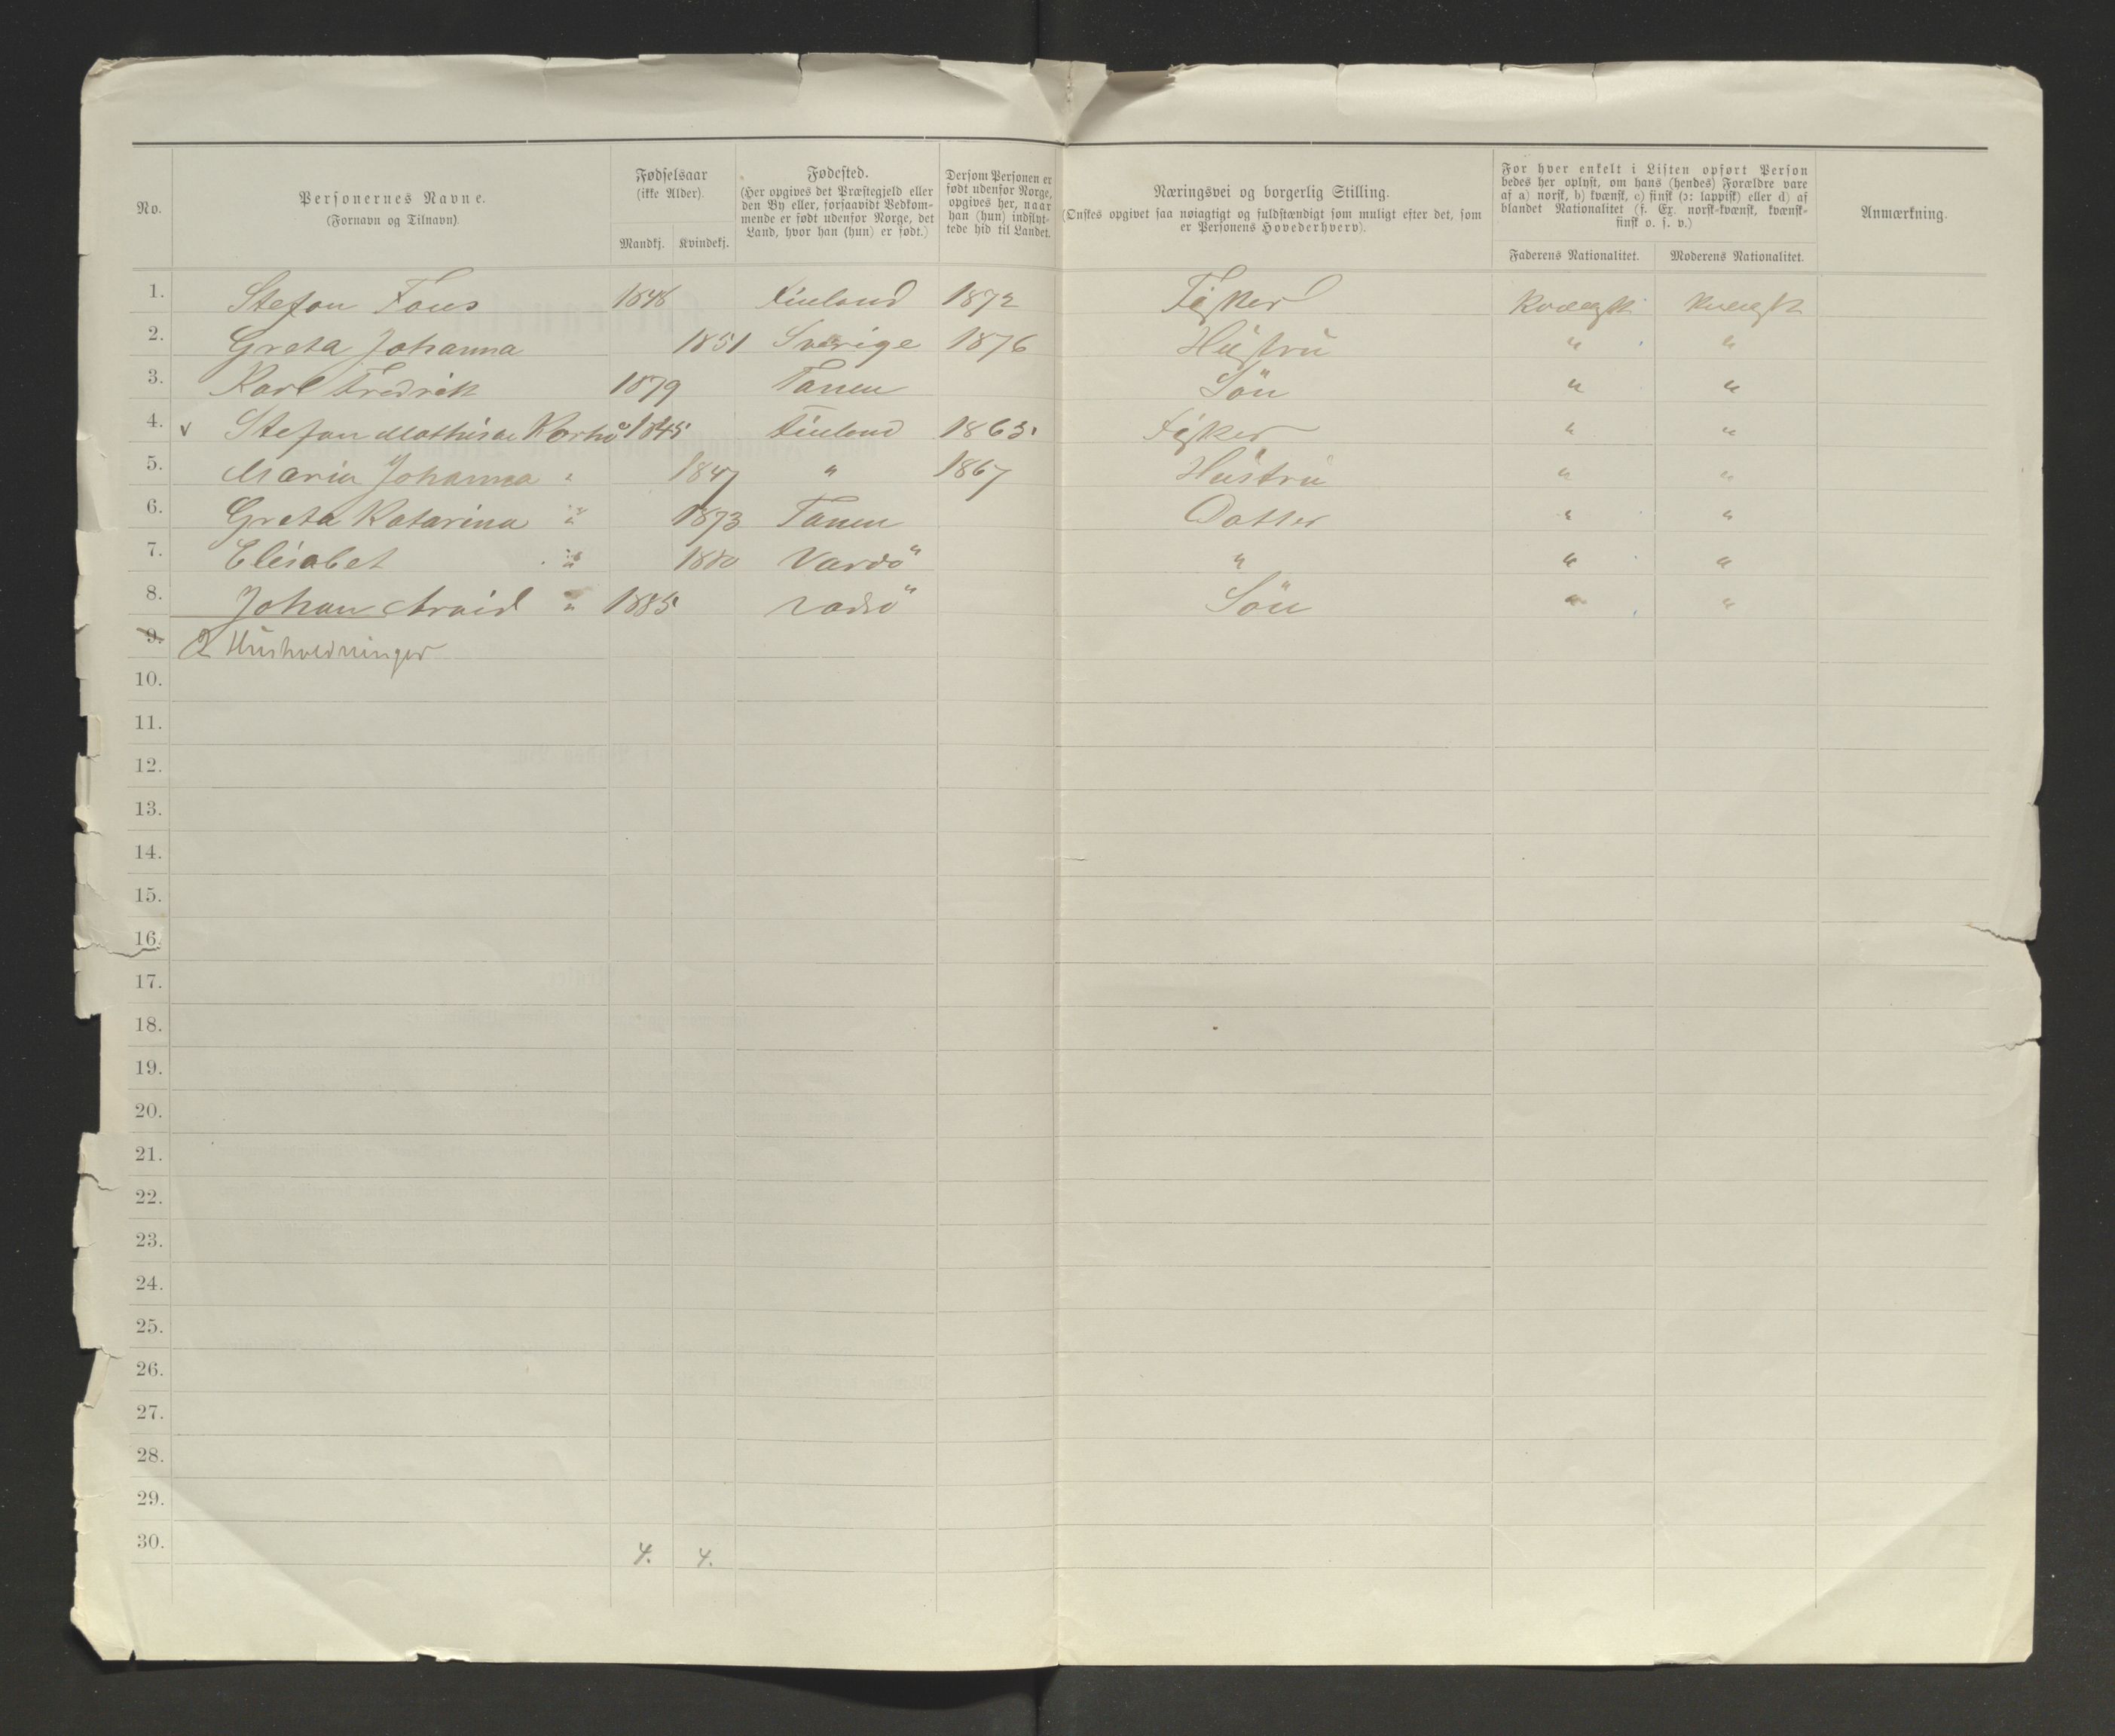 No.
Personernes Navne.
(Fornavn og Tilnavn).
Fødselsaar
(ikke Alder).
Mandkj. Kvindekj.
Fødested.
(Her opgives det Præstegjeld eller
den By eller, forsaavidt Vedkom-
mende er født udenfor Norge, det
Land, hvor han (hun) er født.)
Dersom Personen er
født udenfor Norge,
opgives her, naar
han (hun) indflyt-
tede hid til Landet.
Næringsvei og borgerlig Stilling.
(Ønskes opgivet saa nøiagtigt og fuldstændigt som muligt efter det, som
er Personens Hovederhverv).
For hver enkelt i Listen opført Person
bedes her oplyst, om hans (hendes) Forældre vare
af a) norsk, b) kvænsk, c) finsk (ɔ: lappisk) eller d) af
blandet Nationalitet (f. Ex. norsk-kvænsk, kvænsk-
finsk o. s. v.)
Faderens Nationalitet. Moderens Nationalitet.
Anmærkning.
1. Stefan 1848 Finland 1872 Fisker Kvænsk Kvænsk
2. Greta Johanna 1851 Sverige 1876 Hustru " "
3. Karl Fredrik 1879 Tanen Sön " "
4. v Stefan 1845 Finland 1865. Fisker " "
5. Maria Johanna " 1847 " 1867 Hustru " "
6. Greta Katarina " 1873 Tanen Datter " "
7. Elisabet " 1880 Vardö " " "
8. Johan Arvid " 1885 Vadsö Sön " "
9. 2 Husholdninger
10.
11.
12.
13.
14.
15.
16.
17.
18.
19.
20.
21.
22.
23.
24.
25.
26.
27.
28.
29.
30. 4. 4.